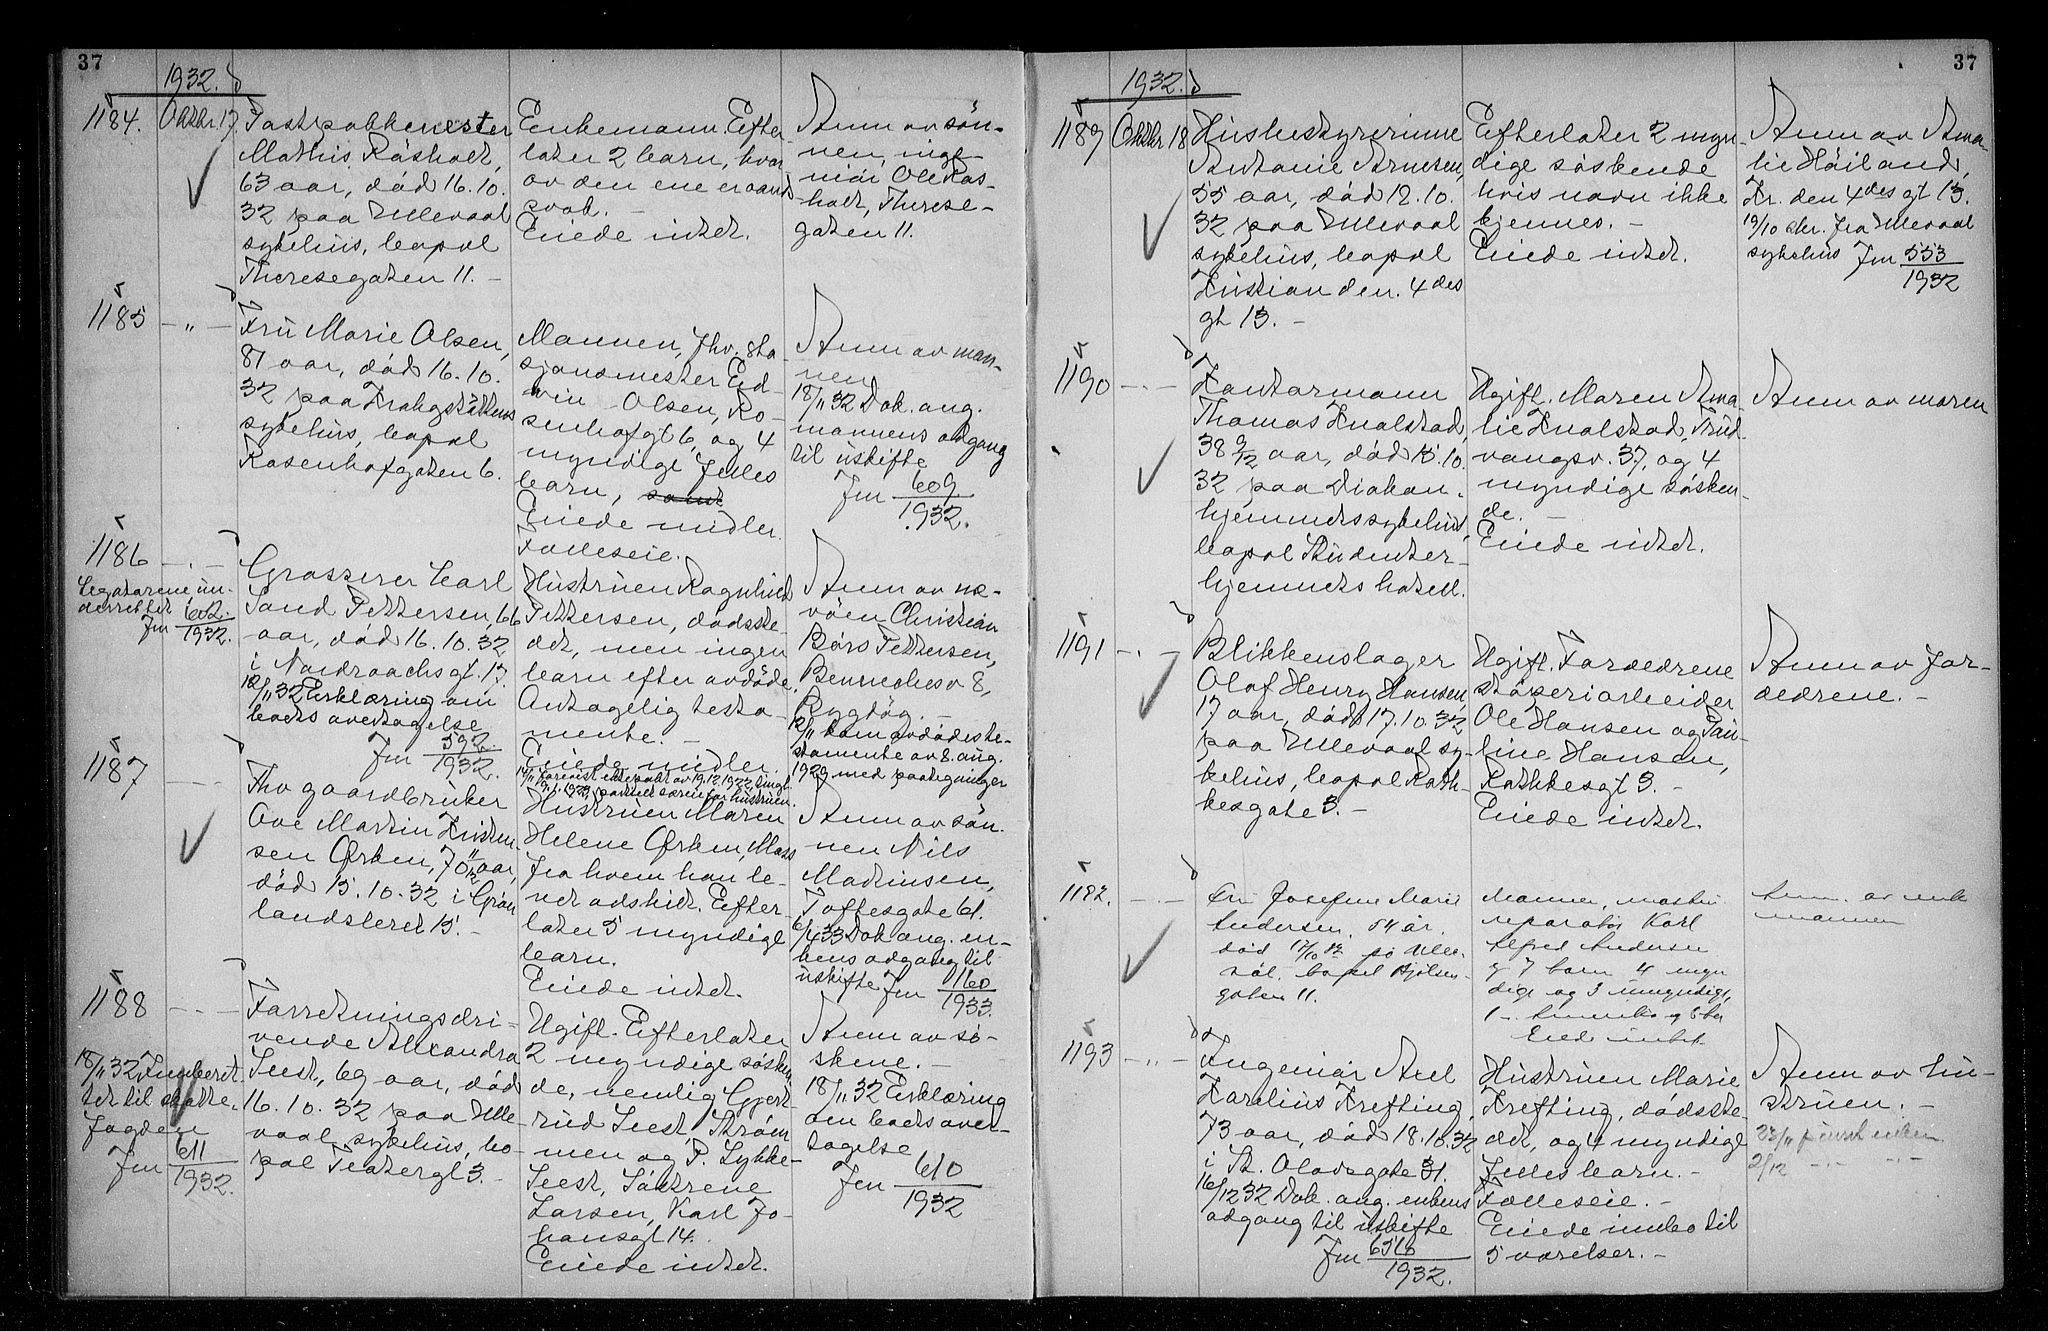 37
1932.
1184. Oktbr. 17.
Postpakkmester
Mathis Råsholt,
63 aar, död 16.10.
32 paa Ullevaal
sykehus, bopæl
Theresegaten 11. –
Enkemann. Efter-
later 2 barn, hvor
av den ene er aand
svak. –
Eiede intet.
Anm av søn-
nen, inge-
niör Ole Rås-
holt, Therese-
gaten 11.
1185 – " –
Fru Marie Olsen,
81 aar, död 16.10.
32 paa
sykehus, bopæl
Rosenhofgaten 6.
Mannen, fhv. sta-
sjonsmester Ed-
vin Olsen, Ro-
senhofgt 6, og 4
myndige felles
barn,
Eiede midler.
Fælleseie.
Anm av man-
nen
18/11 32 Dok. ang.
mannens adgang
til uskifte
Jnr 609
1932.
1186 – " –
Legatarene un-
derrettet
Jnr 602
1932.
Grosserer Carl
Sand Pettersen, 66
aar, död 16.10.32
i Nordraachsgt. 17.
12/11 32 Erklæring om
boets overtagelse
Jnr 592
1932.
Hustruen Ragnhild
Pettersen, dödsste-
det, men ingen
barn efter avdöde.
Antagelig testa-
mente. –
Eiede midler.
14/11 forevist ektepakt av 19.12.1922, tingl.
1923, særeie for hustruen.
Anm av ne-
vöen Christian
Börs Pettersen,
Bennechesv 8,
Bygdög. –
12/11 kom avdödes te-
stamente av 8. aug.
1929 med paategninger
1187 – –
Fhv gaardbruker
Ove Martin Kristen-
sen Ørken, 70 11/12 aar,
död 15.10.32 i Grön
landsleret 15. –
Hustruen Maren
Helene Ørken, Moss
fra hvem han le-
vet adskilt. Efter-
later 5 myndige
barn.
Eiede intet.
Anm av søn-
nen Nils
Martinsen,
Toftesgate 61.
6/4 33 Dok ang. en-
kens adgang til
uskifte Jnr 1160
1933.
1188 – " –
18/11 32 Innberet-
tet til skatte-
fogden
Jnr 611
1932.
Forretningsdri-
vende Alexandra
Seest, 69 aar, död
16.10.32 paa Ulle-
vaal sykehus, bo-
pæl Teatergt 3. –
Ugift. Efterlater
2 myndige sösken-
de, nemlig Gjert-
rud Seest Ström
men og P. Lykke-
Seest, Söstrene
Larsen, Karl Jo-
hansgt 14.
Eiede intet.
Anm av sö-
skene. –
18/11 32 Erklæring
om boets over-
tagelse
Jnr 610
1932
37
1932.
1189 Oktbr 18
Husbestyrerinne
Antonie Arnesen,
55 aar, död 12.10.
32 paa Ullevaal
sykehus, bopæl
Kristian den. 4des
gt 13. –
Efterlater 2 myn-
dige söskende
hvis navn ikke
kjennes. –
Eiede intet.
Anm av Ama-
lie Höiland,
Kr. den 4des gt 13.
19/10 skr. fra Ullevaal
sykehus Jnr 553
1932
1190 – " –
Kontormann
Thomas Knalstad,
38 9/12 aar, död 15.10.
32 paa Diakon-
hjemmets sykehus,
bopæl Studenter-
hjemmets hotell.
Ugift. Moren Ama-
lie Knalstad, Trud-
vangsv. 37, og 4
myndige sösken-
de. –
Eiede intet.
Anm av moren
1191 – " –
Blikkenslager
Olaf Henry Hansen,
17 aar, död 17.10.32
paa Ullevaal sy-
kehus, bopæl Rath-
kesgate 3. –
Ugift. Foreldrene
stöperiarbeider
Ole Hansen og Pau-
line Hansen,
Rathkesgt 3. –
Eiede intet.
Anm av for-
eldrene. –
1192. – " –
Fru Josefine Marie
Andersen, 54 år.
död 17/10 32 på Ulle-
vål. bopæl Hjelms-
gaten 11.
Mannen, maskin
reparatör Karl
Alfred Andersen
og 7 barn 4 myn
dige og 3 umyndige,
Eiede intet
Anm. av enke
mannen
1193 – " –
Ingeniör Axel
Karelius Krefting,
73 aar, död 18.10.32
i St. Olavsgate 31.
16/12 32 Dok. ang. enkens
adgang til uskifte
Jnr 6516
1932.
Hustruen Marie
Krefting, dödsste-
det, og 4 myndige
felles barn. –
Fælleseie. –
Eiede innbo til
5 værelser. –
Anm av hu-
struen. –
23/11 enken
2/12 – " – – " –